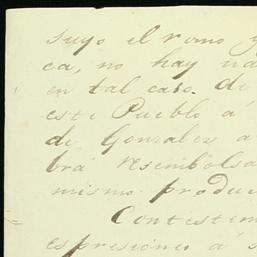 suyo el ramo
ca, no hay
en tal caso. de
este Pueblo á
de Gonzalez a
brá reembolsa
mismo produc
Contestem
espresiones á s